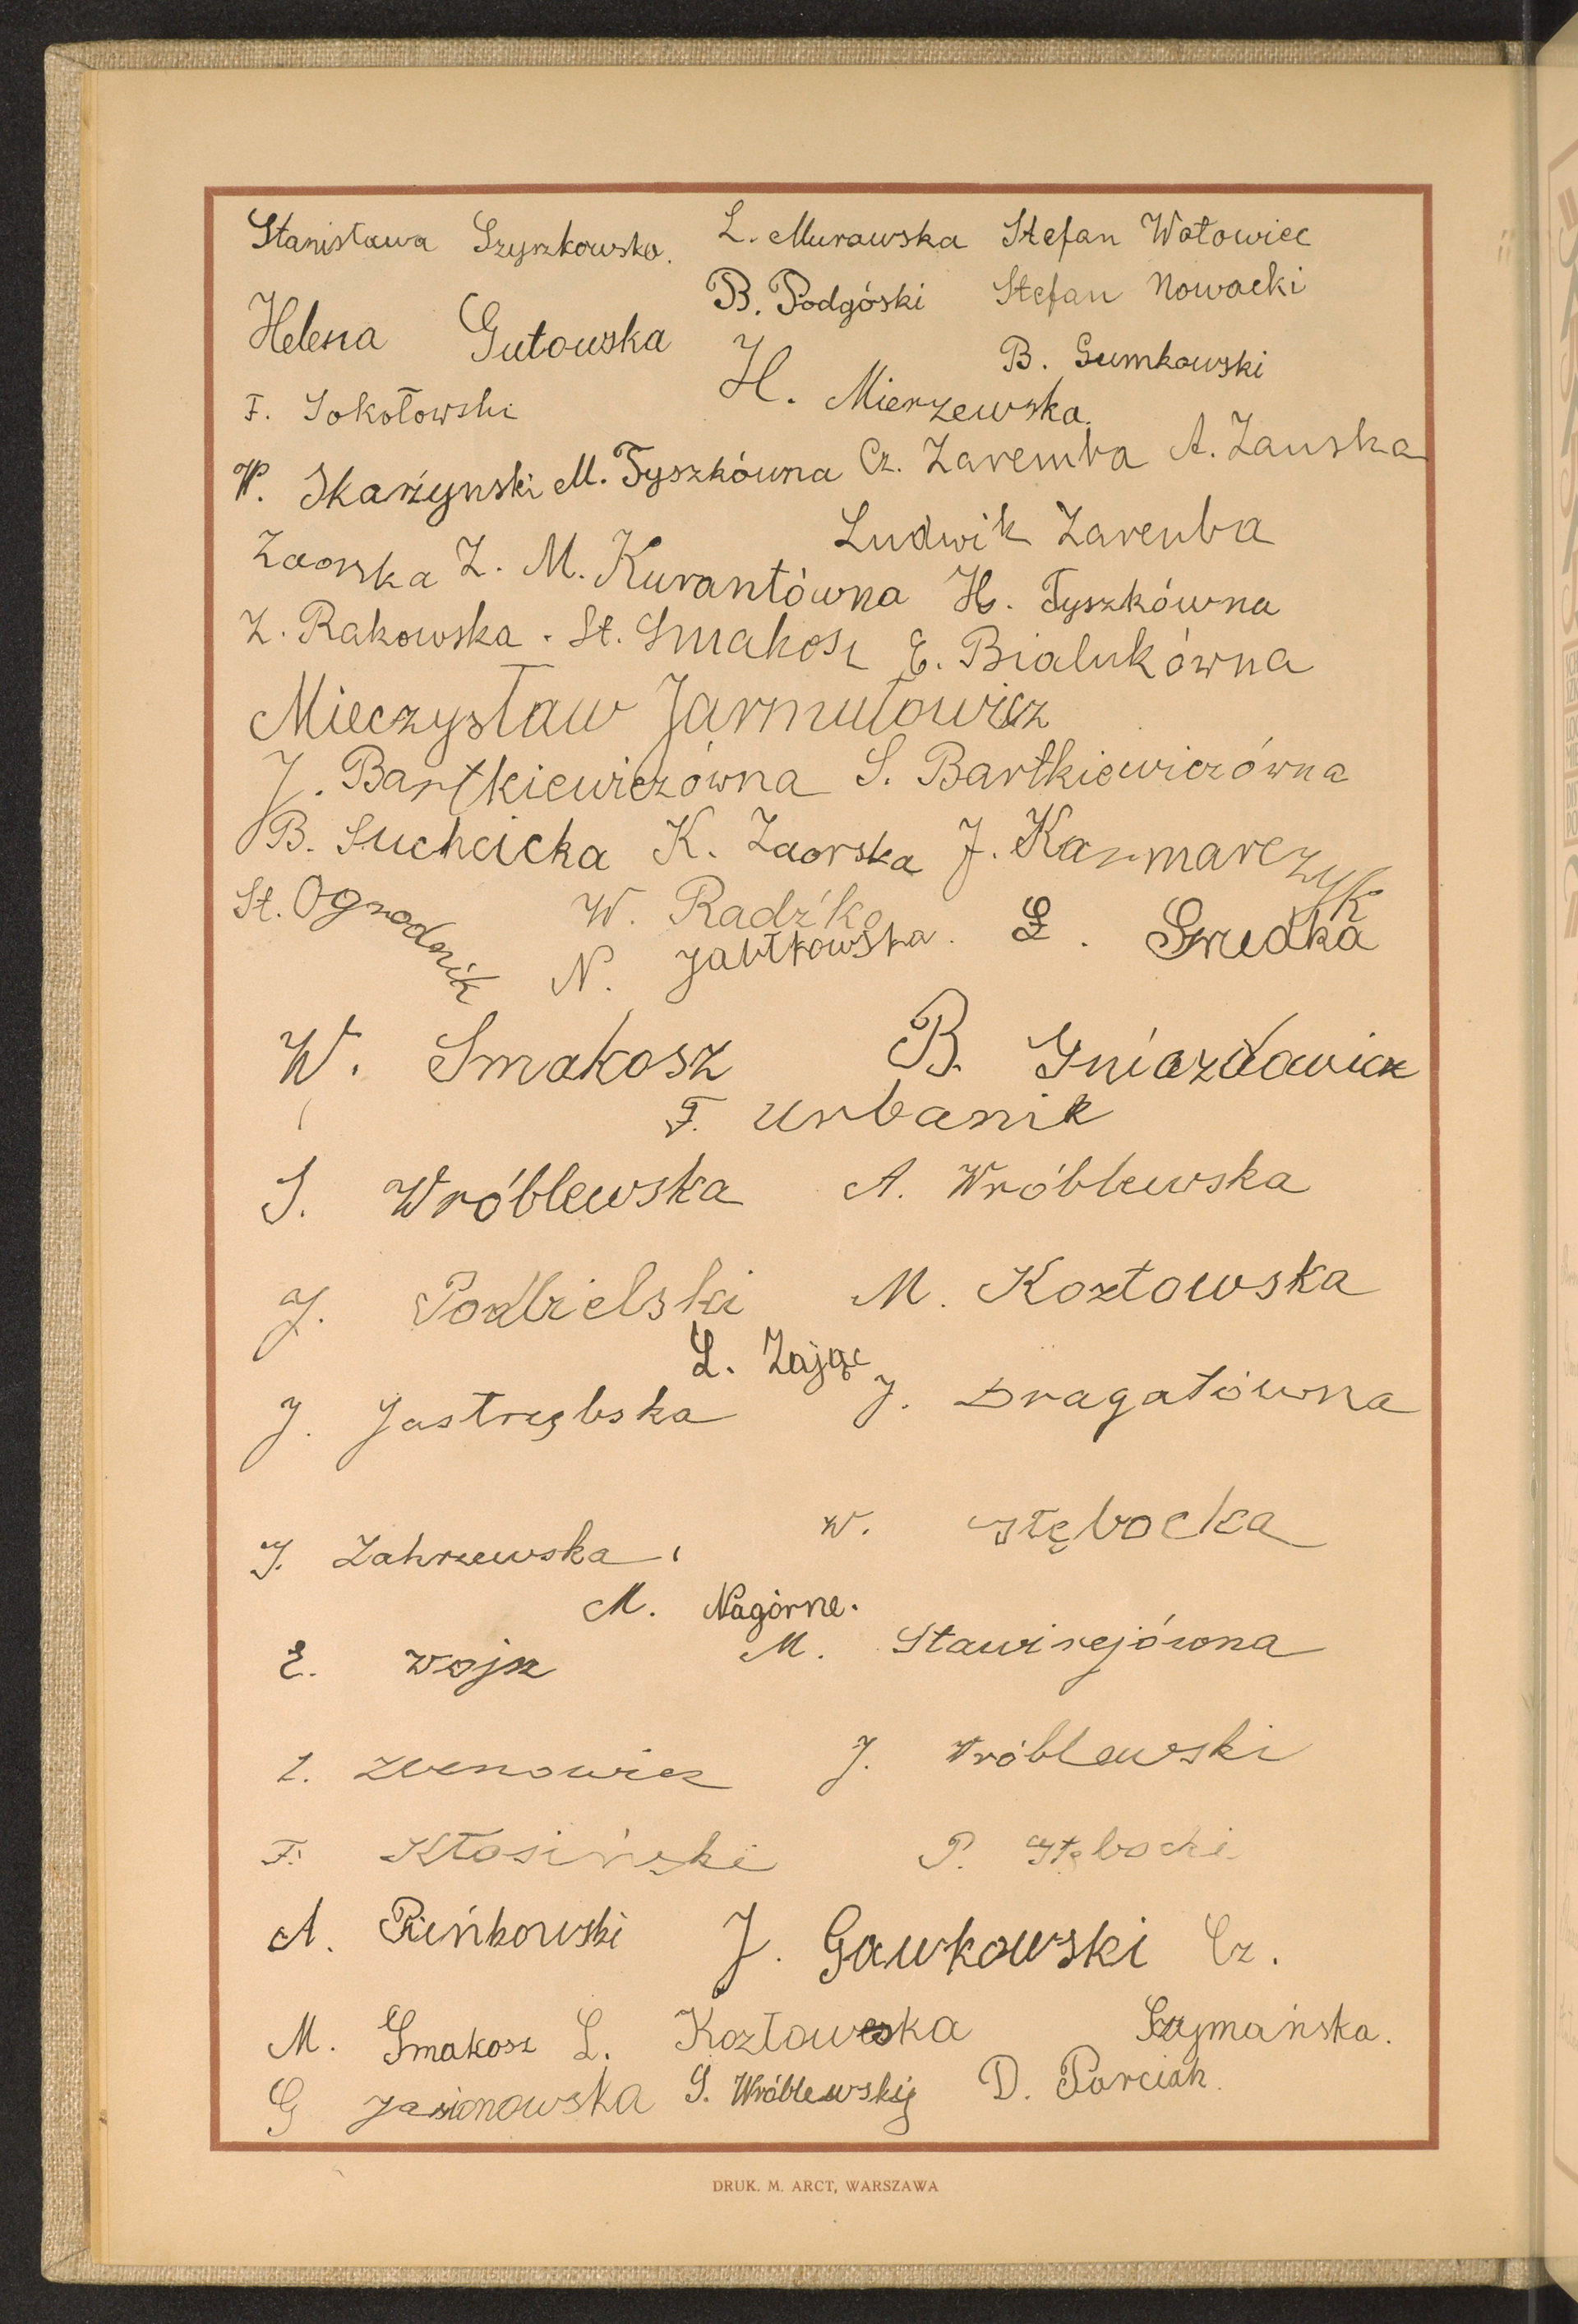 Stanisława Szyszkowska. L. Murawska Stefan Wołowiec
B. Podgórski Stefan Nowacki
Helena Gutowska
B. Gumkowski
F. Sokołowski H. Mierzewska.
W. Skarżynski M. Tyszkówna Cz. Zaremba A. Zauska
Ludwik Zaremba
Zaorska Z. M. Kurantówna H. Tyszkówna
Z. Rakowska. St. Smakosz E. Bialukówna
Mieczysław Jarmułowicz
J. Bartkiewiczówna S. Bartkiewiczówna
B. Suchcicka K. Zaorska J. Kazmarczyk
St. Ogrodnik W. Radźko
N. Jabłkowska. L. Sredka
W. Smakosz B. Gniazdowicz
F. Urbanik
S. Wróblewska A. Wróblewska
J. Podbielski M. Kozłowska
L. Zając
J. Jastrzębska J. Dragatówna
J. Zahrzewska W. Głębocka
M. Nagórne.
E. Wojsz M. Stawirejówna
J. Wróblewski
F. Kłosiński P. Głębocki
A. Pieńkowski J. Gawkowski Cz.
M. Smakosz L. Kozłowska Szymańska.
G Jasionowska S. Wróblewski D. Parciak.
DRUK. M. ARCT, WARSZAWA